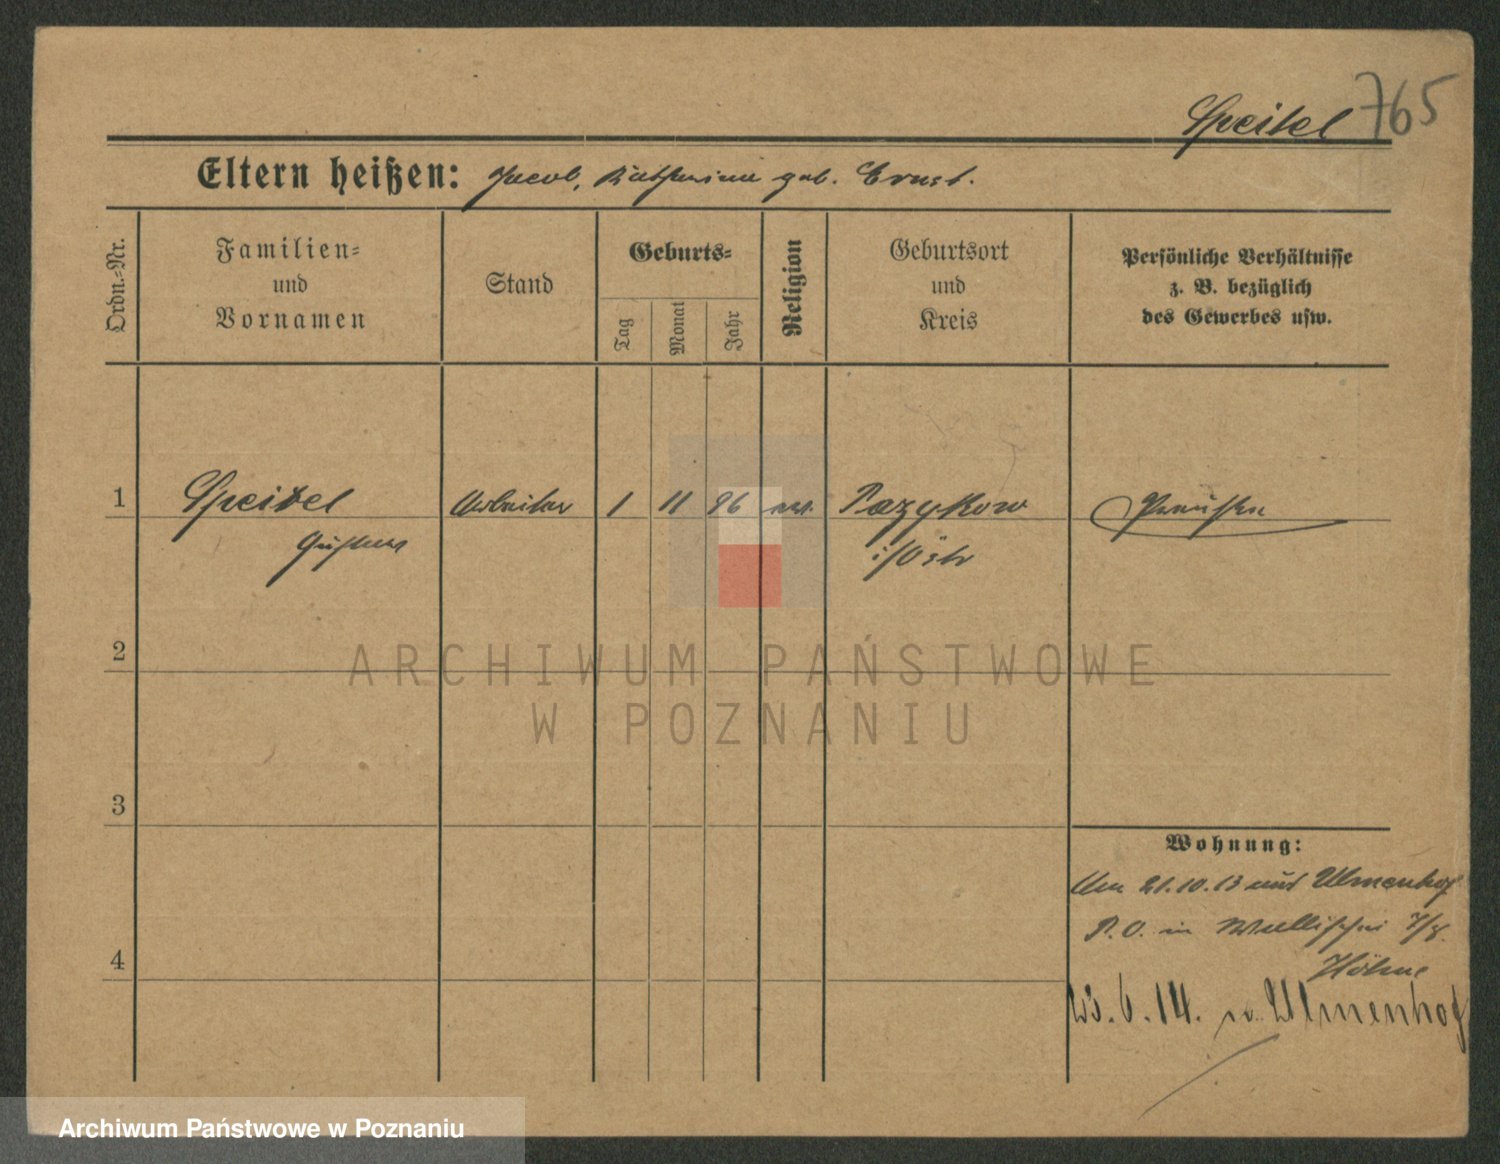 765
Speitel
Eltern heißen: Jacob, Katharina geb. Ernst.
Ordn.-Nr.
Familien-
und
Vornamen
Stand
Geburts-
Tag
Monat
Jahr
Religion
Geburtsort
und
Kreis
Persönliche Verhältnisse
z. B. bezüglich
des Gewerbes usw.
1 Speitel Arbeiter 1 11 96 ev. Pazykow Preußen
Gustav i/Östr
2
ARCHIWUM PAŃSTWOWE
W POZNANIU
3
Wohnung:
Am 21.10.13 aus Ulmenhof
P.O. in Wallischei 7/8.
4
Höhne
23.6.14. n. Ulmenhof
Archiwum Państwowe w Poznaniu